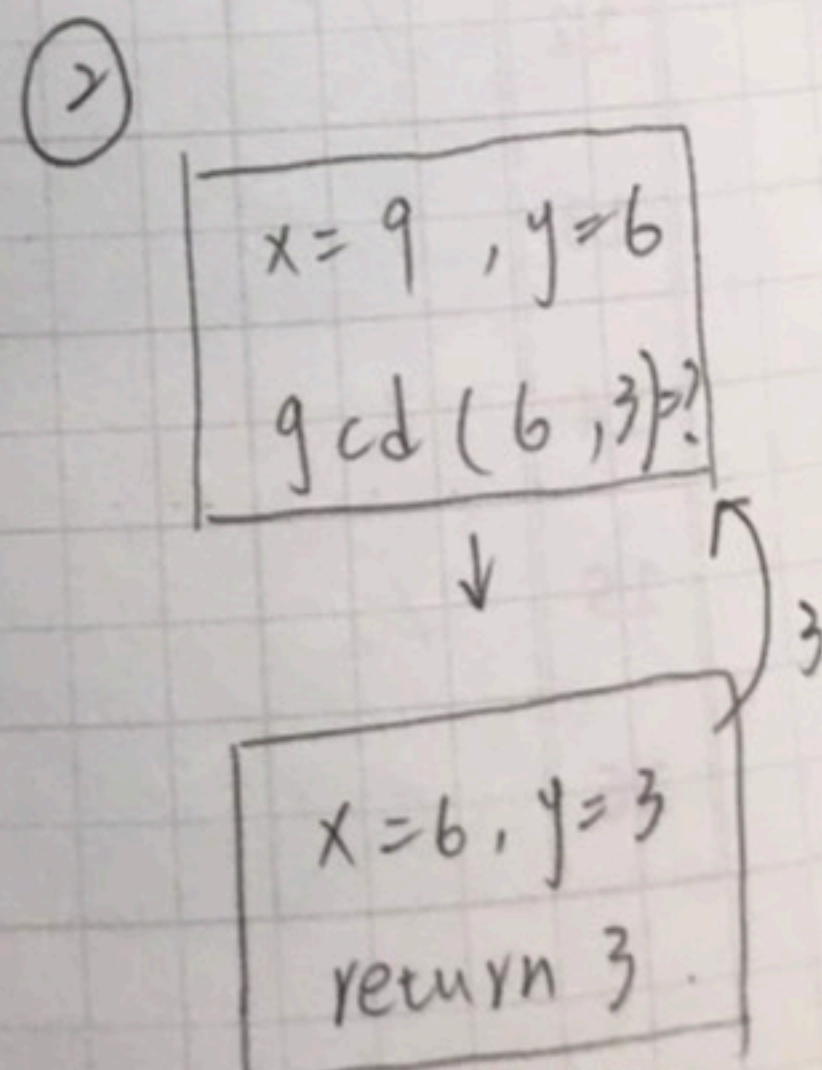 ②
x = 9 , y = 6
gcd ( 6 , 3 ) = ?
↓
3
x = 6 , y = 3
return 3 .